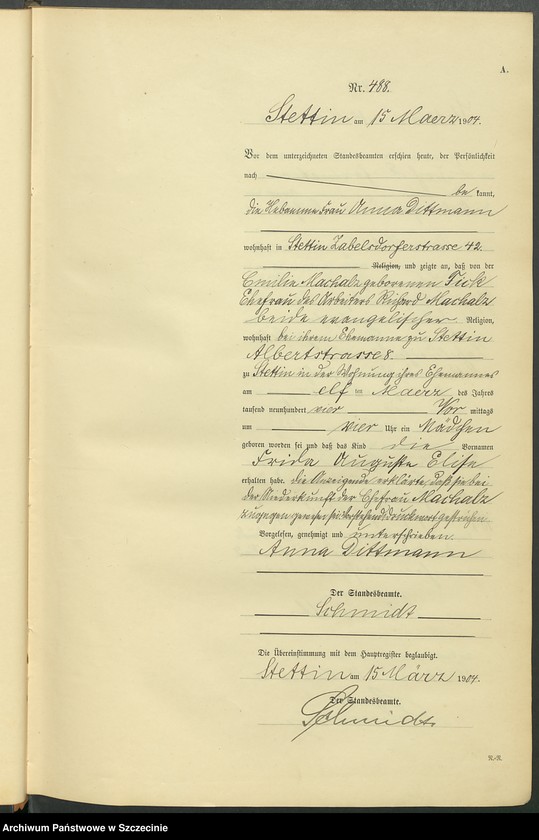 A.
Nr. 488.
Stettin am 15 Maerz 1904.
Vor dem unterzeichneten Standesbeamten erschien heute, der Persönlichkeit
nach
be kannt,
die Hebamme Frau Anna Dittmann
wohnhaft in Stettin Zabelsdorferstrasse 42.
Religion, und zeigte an, daß von der
Emilie Machalz geborenen Fick
Ehefrau des Arbeiters Richard Machalz
beide evangelischer Religion,
wohnhaft bei ihrem Ehemanne zu Stettin
Albertstrasse 8.
zu Stettin in der Wohnung ihres Ehemannes
am elf ten Maerz des Jahres
tausend neunhundert vier Vor mittags
um vier Uhr ein Mädchen
geboren worden sei und daß das Kind die Vornamen
Frida Auguste Elise
erhalten habe. Die Anzeigende erklärte, daß sie bei
der Niederkunft der Ehefrau Machalz
zugegen gewesen sei. Vorstehend 1 Druckwort gestrichen.
Vorgelesen, genehmigt und unterschrieben
Anna Dittmann
Der Standesbeamte.
Schmidt
Die Übereinstimmung mit dem Hauptregister beglaubigt.
Stettin am 15 März 1904.
Der Standesbeamte.
Schmidt.
Archiwum Państwowe w Szczecinie